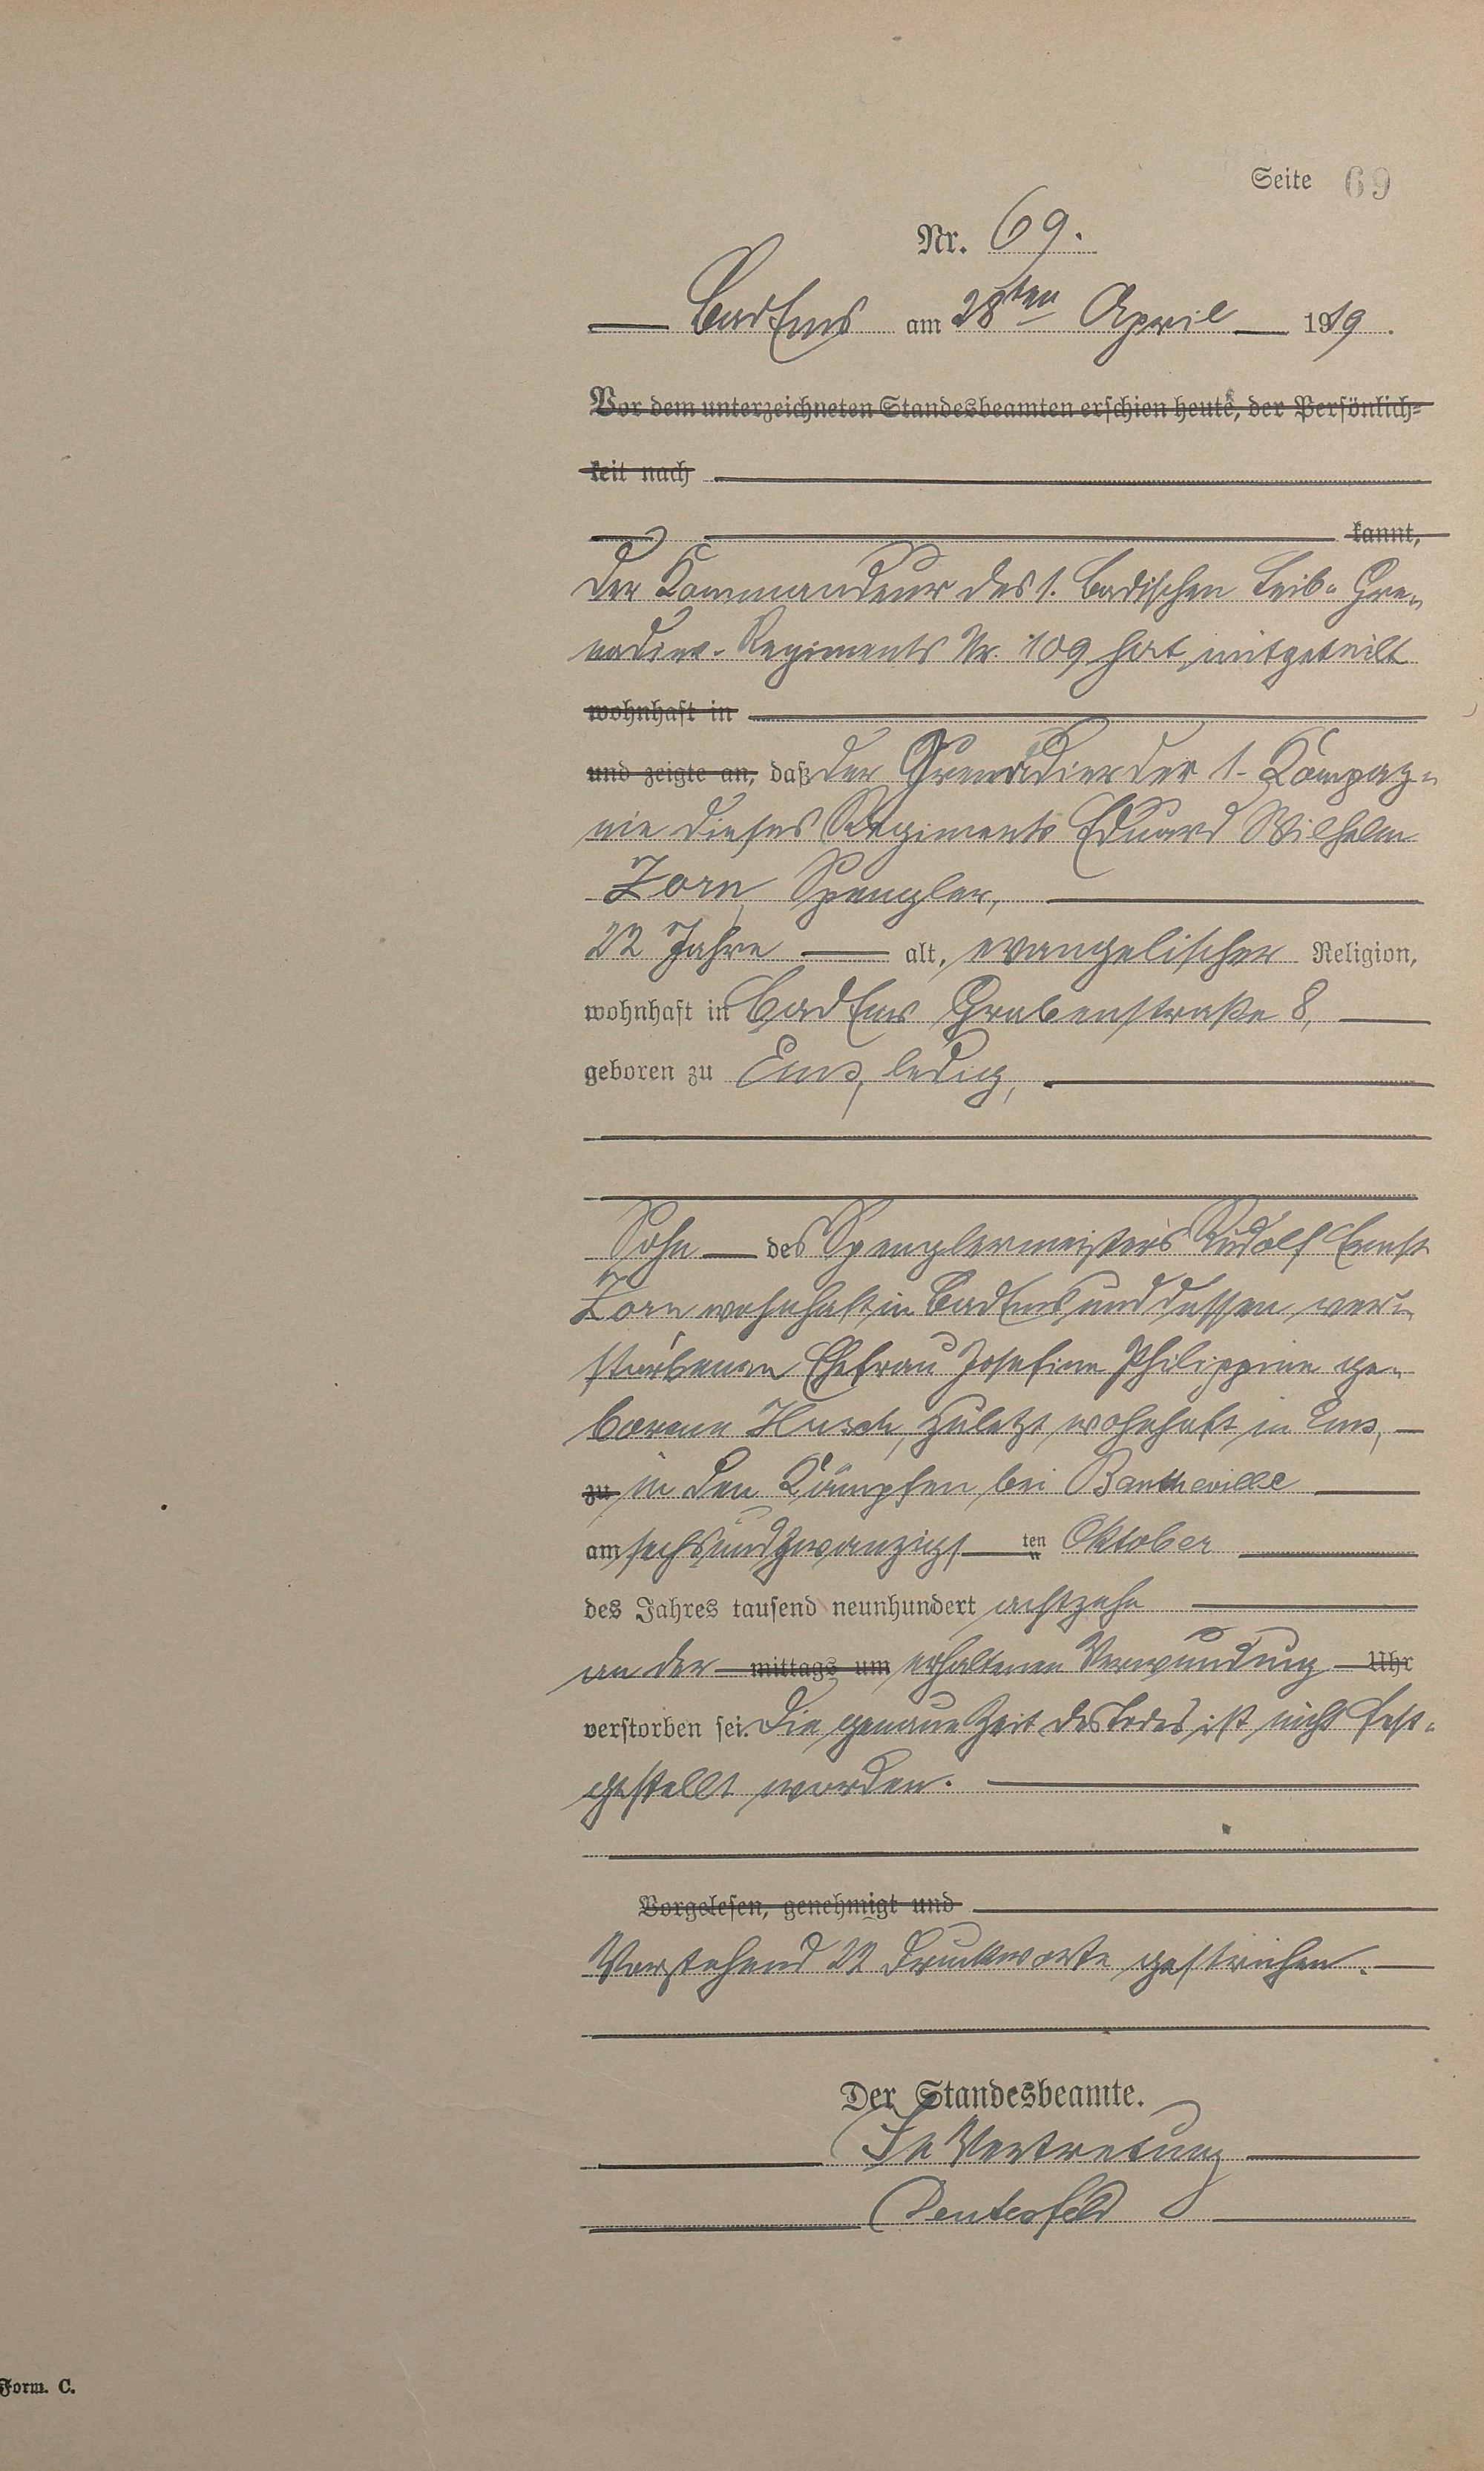 Seite 69
Nr. 69.
Bad Ems am 28ten April 1919.
Vor dem unterzeichneten Standesbeamten erschien heute, der Persönlich-
keit nach
kannt,
Der Kommandeur des 1. Badischen Leib-Gre-
nadier-Regiments Nr. 109 hat mitgeteilt
wohnhaft in
und zeigte an, daß der Grenadier der 1. Kompag-
nie dieses Regiments Eduard Wilhelm
Zorn, Spengler,
22 Jahre alt, evangelischer Religion,
wohnhaft in Bad Ems Grabenstraße 8,
geboren zu Ems, ledig,
Sohn des Spenglermeisters Rudolf Ernst
Zorn wohnhaft in Bad Ems und dessen ver-
storbenen Ehefrau Josefine Philippine ge-
borene, zuletzt wohnhaft in Ems,
zu in den Kämpfen bei Bantheville
am sechsundzwanzigsten Oktober
des Jahres tausend neunhundert achtzehn
an der mittags um erhaltenen Verwundung Uhr
verstorben sei. Die genaue Zeit des Todes ist nicht fest-
gestellt worden.
Vorgelesen, genehmigt und
Vorstehend 22 Druckworte gestrichen.
Der Standesbeamte.
In Vertretung
Form. C.